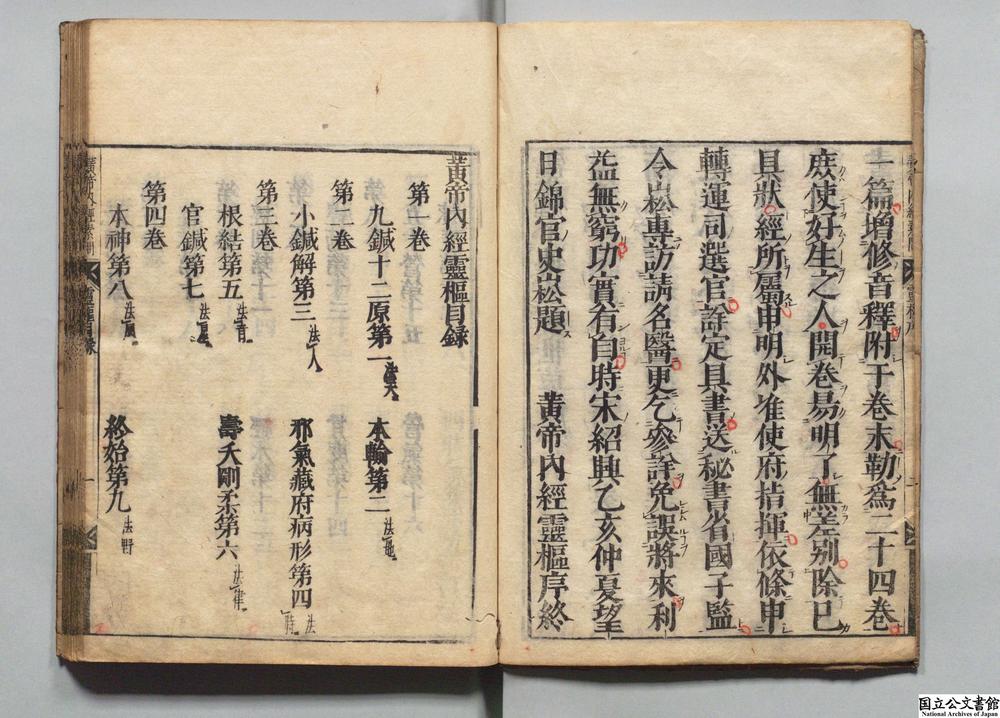 一篇增修音釋附于卷末勒爲二十四卷
庻使好生之人開卷易明了無差别除已
具狀經所屬申明外准使府指揮依條申
轉運司選官詳定具書送秘書省國子監
今崧專訪請名醫更乞參詳免誤將來利
益無窮功實有自時宋紹興乙亥仲夏望
日錦官史崧題 黃帝內經靈樞序終
黃帝內經靈樞目錄
第一卷
九鍼十二原第一 法天 本輸第二 法地
第二卷
小鍼解第三 法人 邪氣藏府病形第四 法時
第三卷
根結第五 法音 壽夭剛柔第六 法律
官鍼第七 法星
第四卷
本神第八 法風 終始第九 法野
靈樞目録
一
国立公文書館
National Archives of Japan